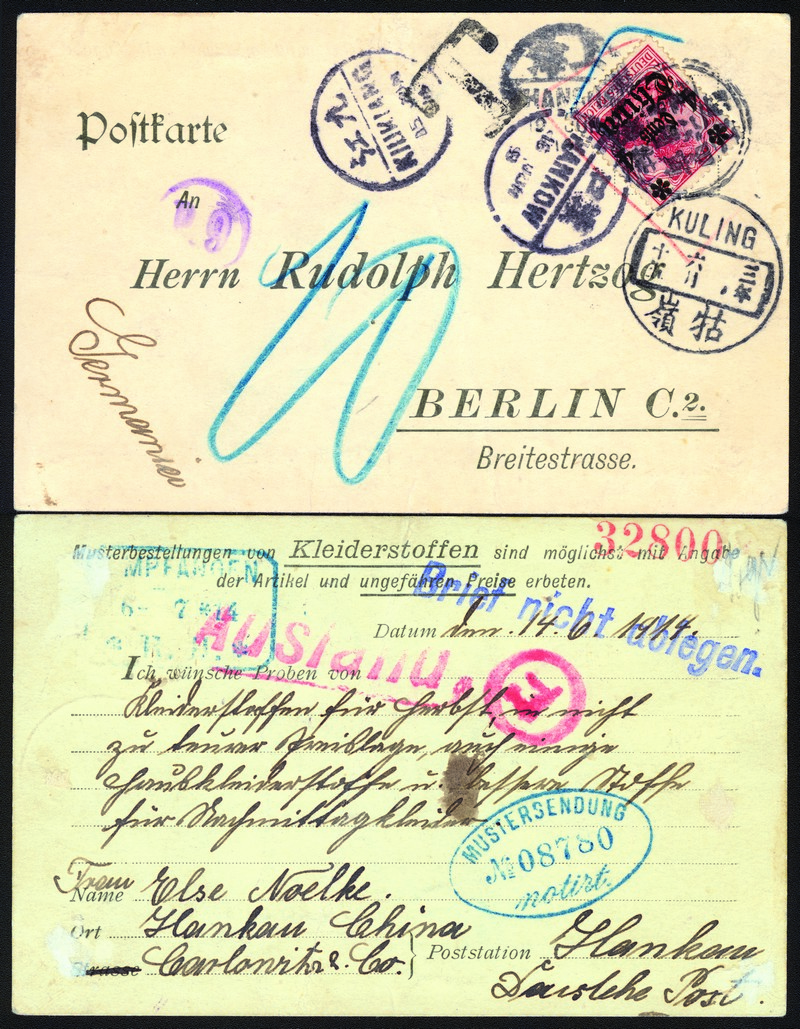 Postkarte
九江
KIUKIANG
T
HANKOW
漢口
KULING
牯嶺
China
An
Herrn Rudolph Hertzog
BERLIN C.2.
Breitestrasse.
10
Musterbestellungen von Kleiderstoffen sind möglichst mit Angabe
der Artikel und ungefähren Preise erbeten.
32800
EMPFANGEN
Ausland.
Brief nicht ablegen.
Datum den 14. 6. 1914.
Ich wünsche Proben von
Kleiderstoffen für Herbst, in nicht
zu teurer Preislage, auch einige
Hauskleiderstoffe u. bessere Stoffe
für Nachmittagkleider
MUSTERSENDUNG
No 08780
notirt.
Name Frau Else Noelke.
Ort Hankau China
Strasse Carlowitz & Co. } Poststation Hankau
Deutsche Post.